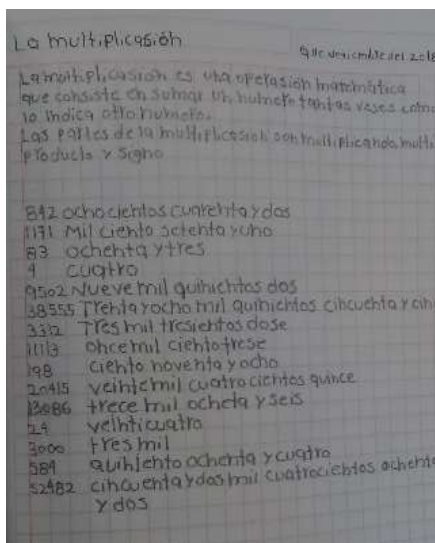 La multiplicasión
9 de noviembre del 2018
La multiplicasión es una operasión matemática
que consiste en sumar un numero tantas veses como
lo indica otro numero.
Las partes de la multiplicasion son multiplicando, multi
producto y signo
842 ochocientos cuarenta y dos
1171 Mil ciento setenta y uno
83 ochenta y tres
4 cuatro
9502 Nueve mil quinientos dos
38555 Trenta y ocho mil quinientos cincuenta y cin
3312 Tres mil tresientos dose
11113 once mil ciento trese
198 ciento noventa y ocho
20415 veinte mil cuatrocientos quince
13086 trece mil ocheta y seis
24 veinticuatro
3000 tres mil
584 quiniento ochenta y cuatro
52482 cincuenta y dos mil cuatrocientos ochenta
y dos